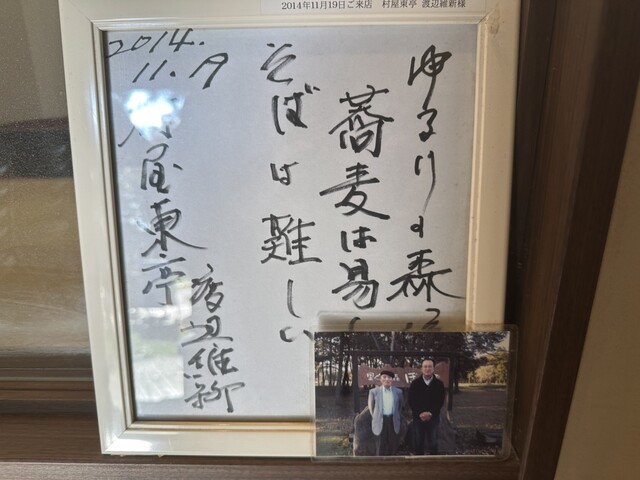 2014年11月19日ご来店 村屋東亭 渡辺維新様
ゆるりの森
蕎麦は易し
そばは難しい
2014.
11.19
村屋東亭
渡辺維新